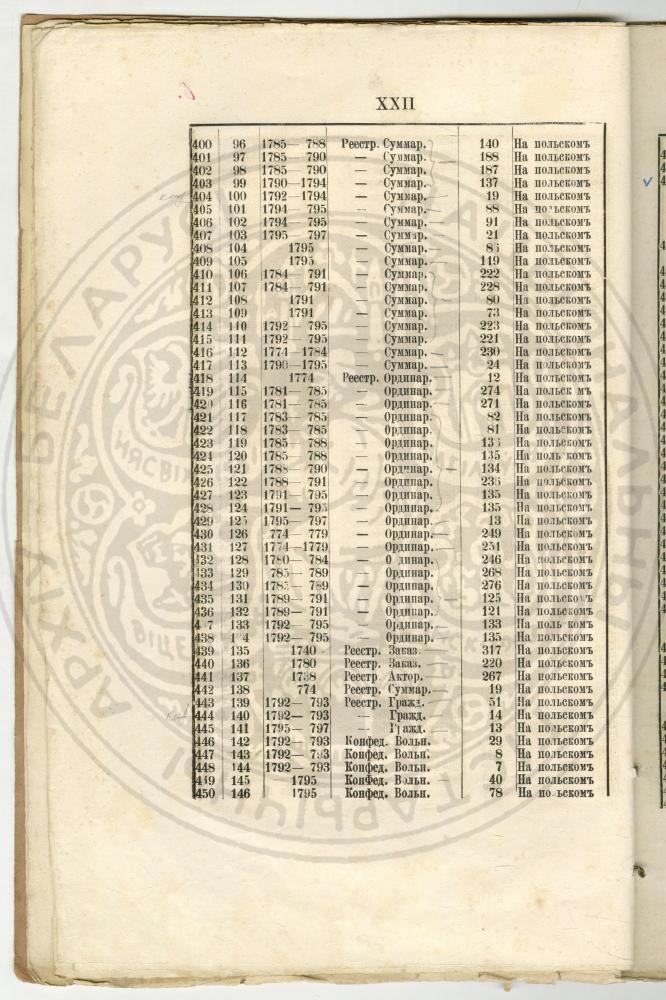 XXII
400 96 1785— 788 Реестр. Суммар. 140 На польскомъ
401 97 1785— 790 — Суммар. 188 На польскомъ
402 98 1785— 790 — Суммар. 187 На польскомъ
403 99 1790—1794 — Суммар. 137 На польскомъ
404 100 1792—1794 — Суммар. 19 На польскомъ
405 101 1794— 795 — Суммар. 88 На польскомъ
406 102 1794— 795 — Суммар. 91 На польскомъ
407 103 1795— 797 — Суммар. 21 На польскомъ
408 104 1795 — Суммар. На польскомъ
409 105 1795 — Суммар. 119 На польскомъ
410 106 1784— 791 — Суммар. 222 На польскомъ
411 107 1784— 791 — Суммар. 228 На польскомъ
412 108 1791 — Суммар. 80 На польскомъ
413 109 1791 — Суммар. 73 На польскомъ
414 110 1792— 795 — Суммар. 223 На польскомъ
415 111 1792— 795 — Суммар. 221 На польскомъ
416 112 1774—1784 — Суммар. 230 На польскомъ
417 113 1790—1795 — Суммар. 24 На польскомъ
418 114 1774 Реестр. Ординар. 12 На польскомъ
419 115 1781— 785 — Ординар. 274 На польскомъ
420 116 1781— 785 — Ординар. 271 На польскомъ
421 117 1783— 785 — Ординар. 82 На польскомъ
422 118 1783— 785 — Ординар. 81 На польскомъ
423 119 1785— 788 — Ординар. На польскомъ
424 120 1785— 788 — Ординар. 135 На польскомъ
425 121 1788— 790 — Ординар. 134 На польскомъ
426 122 1788— 791 — Ординар. На польскомъ
427 123 1791— 795 — Ординар. 135 На польскомъ
428 124 1791— 795 — Ординар. 135 На польскомъ
429 125 1795— 797 — Ординар. 13 На польскомъ
430 126 774— 779 — Ординар. 249 На польскомъ
431 127 1774—1779 — Ординар. 251 На польскомъ
432 128 1780— 784 — Ординар. 246 На польскомъ
433 129 785— 789 — Ординар. 268 На польскомъ
434 130 1785— 789 — Ординар. 276 На польскомъ
435 131 1789— 791 — Ординар. 125 На польскомъ
436 132 1789— 791 — Ординар. 121 На польскомъ
437 133 1792— 795 — Ординар. 133 На польскомъ
438 134 1792— 795 — Ординар. 135 На польскомъ
439 135 1740 Реестр. Заказ. 317 На польскомъ
440 136 1780 Реестр. Заказ. 220 На польскомъ
441 137 1738 Реестр. Актор. 267 На польскомъ
442 138 774 Реестр. Суммар. 19 На польскомъ
443 139 1792— 793 Реестр. Гражд. 51 На польскомъ
444 140 1792— 793 — Гражд. 14 На польскомъ
445 141 1795— 797 — Гражд. 13 На польскомъ
446 142 1792— 793 Конфед. Вольн. 29 На польскомъ
447 143 1792— 793 Конфед. Вольн. 8 На польскомъ
448 144 1792— 793 Конфед. Вольн. 7 На польскомъ
449 145 1795 Конфед. Вольн. 40 На польскомъ
450 146 1795 Конфед. Вольн. 78 На польскомъ